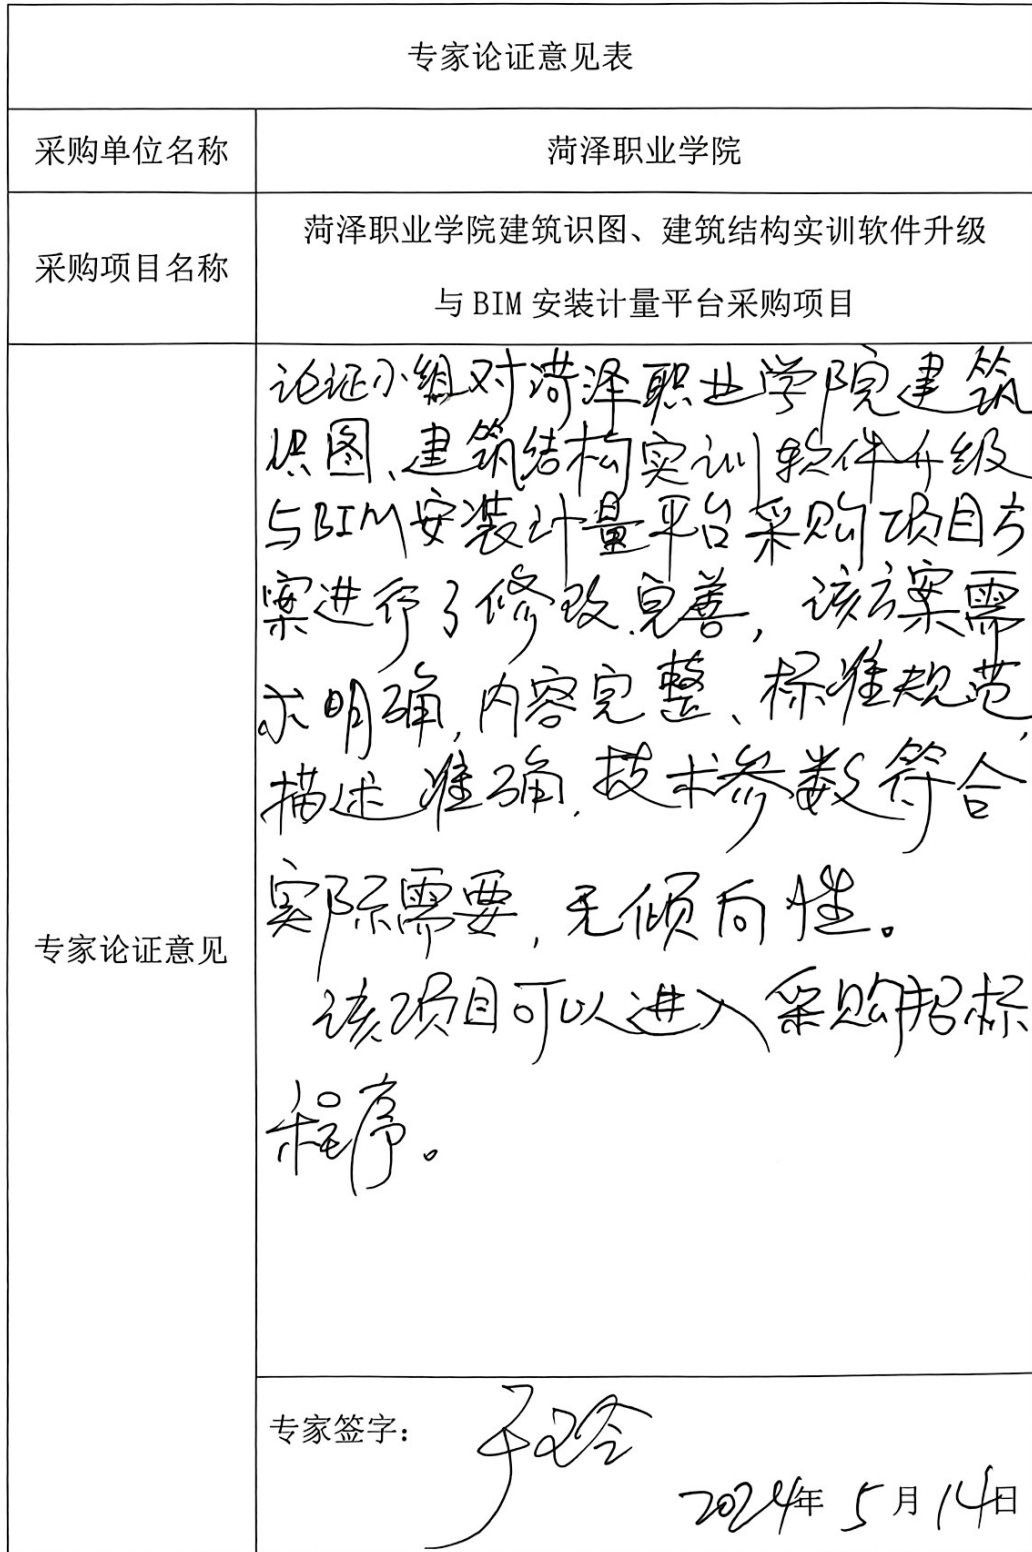 专家论证意见表
采购单位名称
菏泽职业学院
采购项目名称
菏泽职业学院建筑识图、建筑结构实训软件升级
与 BIM 安装计量平台采购项目
专家论证意见
论证小组对菏泽职业学院建筑
识图、建筑结构实训软件升级
与BIM安装计量平台采购项目方
案进行了修改完善，该方案需
求明确，内容完整、标准规范，
描述准确，技术参数符合
实际需要，无倾向性。
该项目可以进入采购招标
程序。
专家签字：
2024年 5月 14日